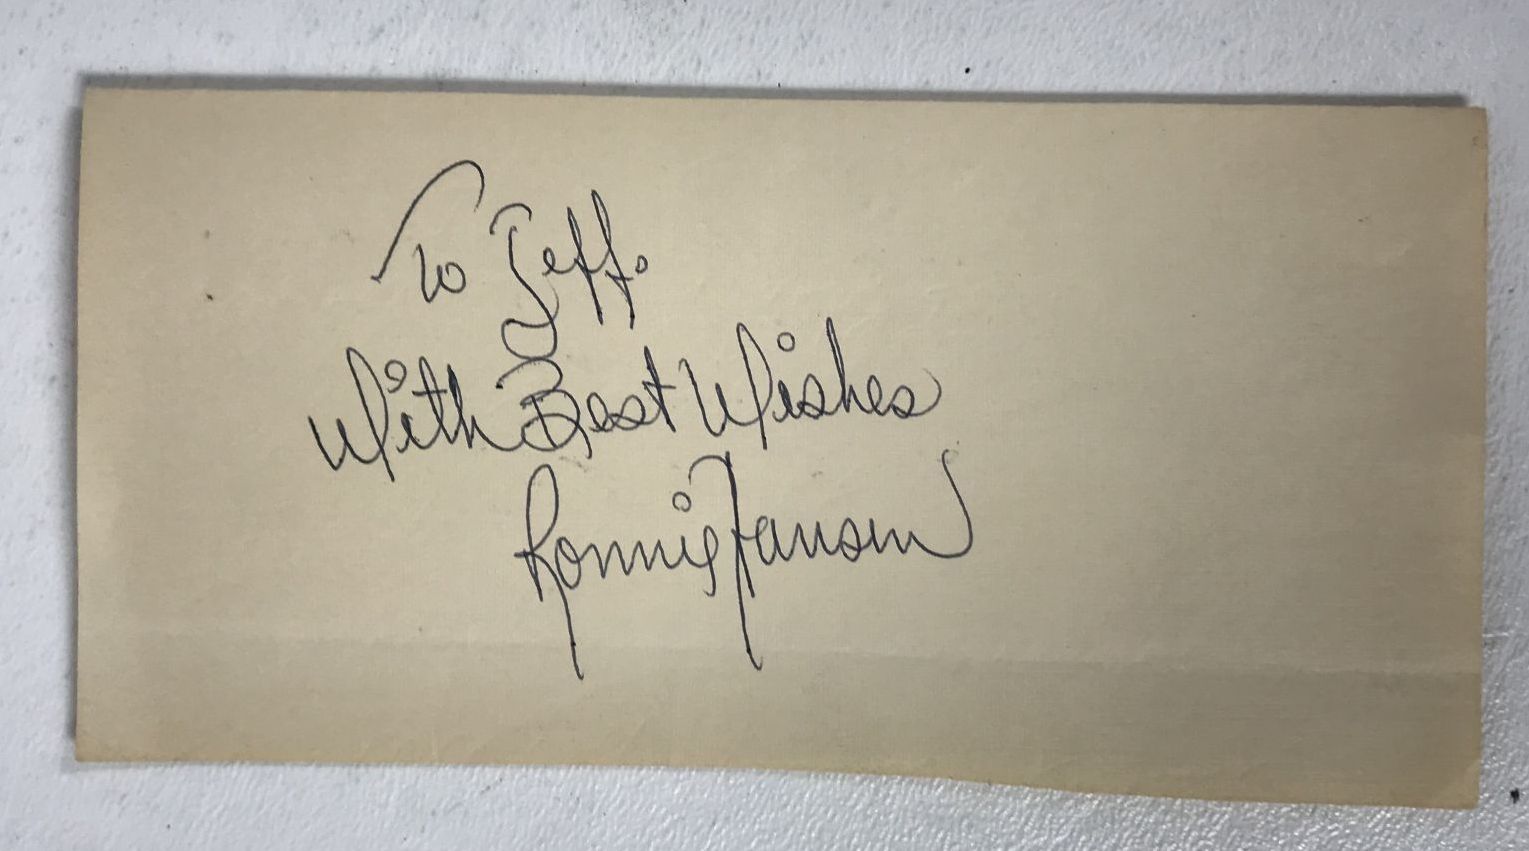 To Jeff.
With Best Wishes
Ronnie